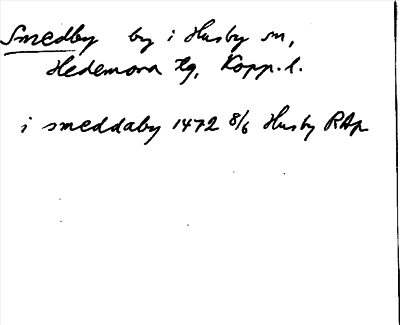 Smedby by i Husby sn,
Hedemora tg, Kopp. l.
i smeddaby 1472 8/6 Husby RAp